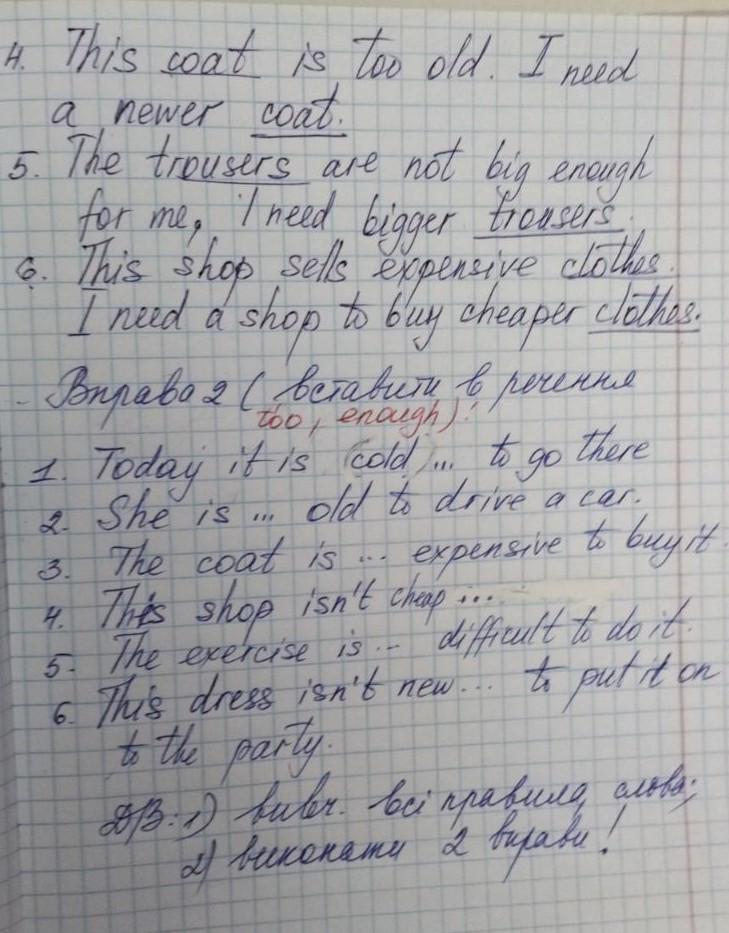 4. This coat is too old. I need
a newer coat.
5. The trousers are not big enough
for me, I need bigger trousers.
6. This shop sells expensive clothes.
I need a shop to buy cheaper clothes.
- Вправа 2 ( вставити в речення
too, enough)!
1. Today it is (cold) ... to go there
2. She is ... old to drive a car.
3. The coat is ... expensive to buy it.
4. This shop isn't cheap ...
5. The exercise is ... difficult to do it.
6. This dress isn't new ... to put it on
to the party.
Д/З: 1) вивч. всі правила, слова;
2) виконати 2 вправи!